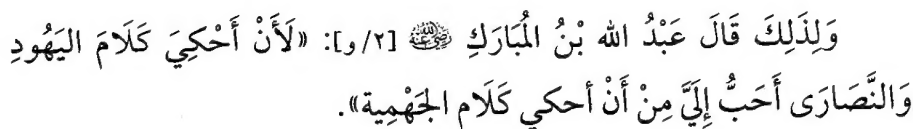 وَلِذَلِكَ قَالَ عَبْدُ الله بْنُ الْمُبَارَكِ رضي الله عنه [٢/ و]: «لَأَنْ أَحْكِيَ كَلَامَ اليَهُودِ
وَالنَّصَارَى أَحَبُّ إِلَيَّ مِنْ أَنْ أحكي كَلَام الجَهْمِية».